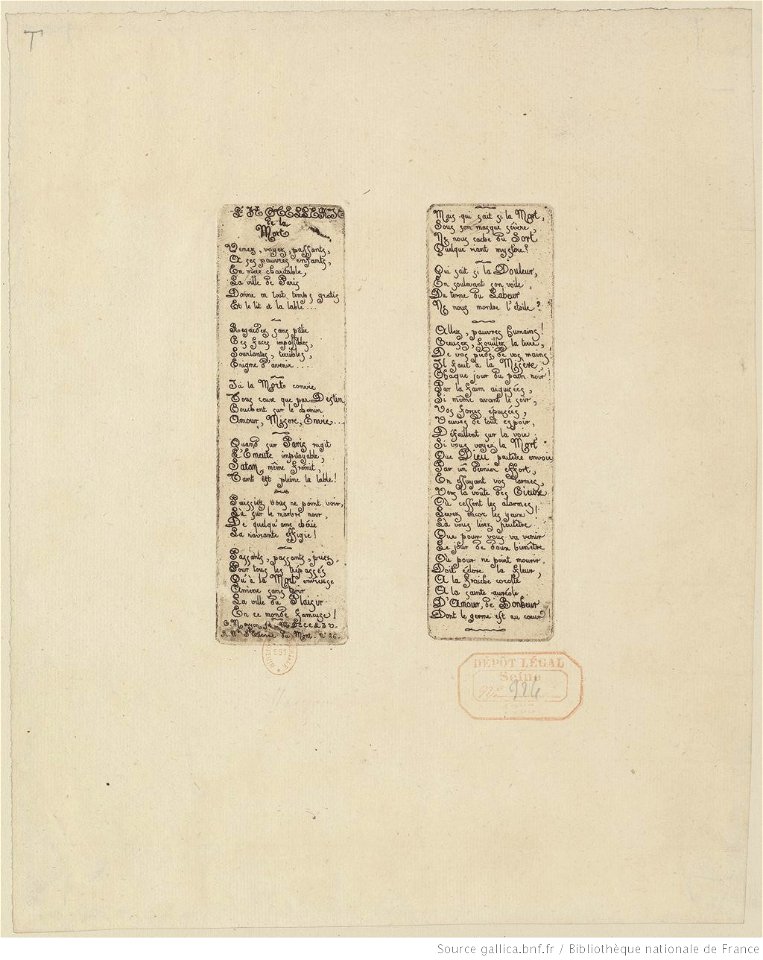 T
L'HÔTELLERIE
de la
Mort
Venez, voyez, passants,
A ses pauvres enfants,
En mère charitable,
La ville de Paris
Donne en tout temps gratis
Et le lit et la table...
Regardez sans pâlir
Ces faces impassibles,
Souriantes, terribles,
Énigme d'avenir...
Ici la Mort convie
Tous ceux que par Destin
Couchent sur le chemin
Amour, Misère, Envie...
Quand sur Paris rugit
L'Émeute impitoyable,
Satan même frémit,
Tant est pleine la table!
Puissiez vous ne point voir,
Là sur le marbre noir,
De quelqu'âme chérie
La navrante effigie!
Passants, passants, priez
Pour tous les trépassés
Qu'à la Mort
Amène sans
La ville de Plaisir
En ce monde fameuse!
Mais qui sait si la Mort,
Sous son masque sévère,
Ne nous cache du Sort
Quelque riant mystère?
Qui sait si la Douleur,
En soulevant son voile,
Du terme du Labeur
Ne nous montre l'étoile?
Allez, pauvres humains!
Creusez, fouillez la terre,
De vos pieds, de vos mains!
Il faut à la Misère,
Chaque jour du pain noir!
Par la faim aiguisées,
Si même avant le soir,
Vos forces épuisées,
Veuves de tout espoir,
Défaillent sur la voie
Si vous voyez la Mort
Que Dieu peutêtre envoie
Par un dernier effort,
En essuyant vos larmes,
Vers la voûte des Cieux
Où cessent les alarmes
Levez encor les yeux!
Là vous lirez peutêtre
Que pour vous va venir
Le jour de doux bienêtre
Où pour ne point mourir,
Doit éclore la fleur,
A la fraîche corolle
A la sainte auréole
D'Amour, de Bonheur
Dont le germe est au cœur!
DÉPÔT LÉGAL
Seine
Source gallica.bnf.fr / Bibliothèque nationale de France